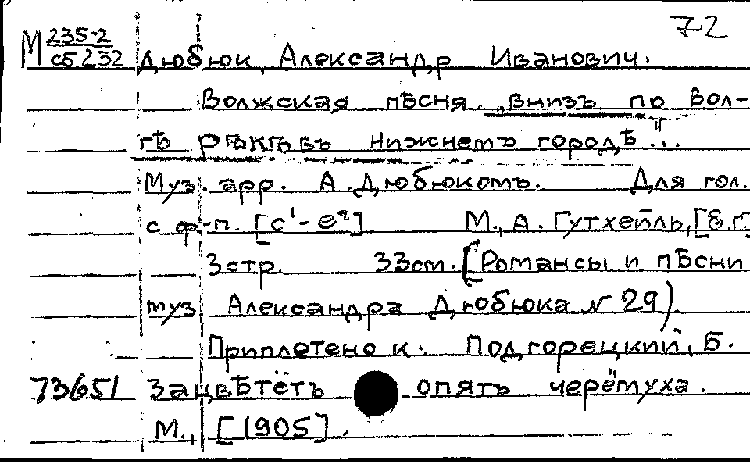 72
М 235-2
сб 232 Дюбюк, Александр Иванович.
Волжская пѣсня „внизъ по Вол-
гѣ рѣкѣ въ Нижнемъ городѣ"...
Муз. арр. А. Дюбюкомъ. Для гол.
с ф-п. [c¹-e²] М., А. Гутхейль, [б.г.]
3 стр. 33 см. (Романсы и пѣсни
муз. Александра Дюбюка N 29).
Приплетено к: Подгорецкий, Б.
73651 Зацвѣтётъ опять черёмуха.
М., [1905].